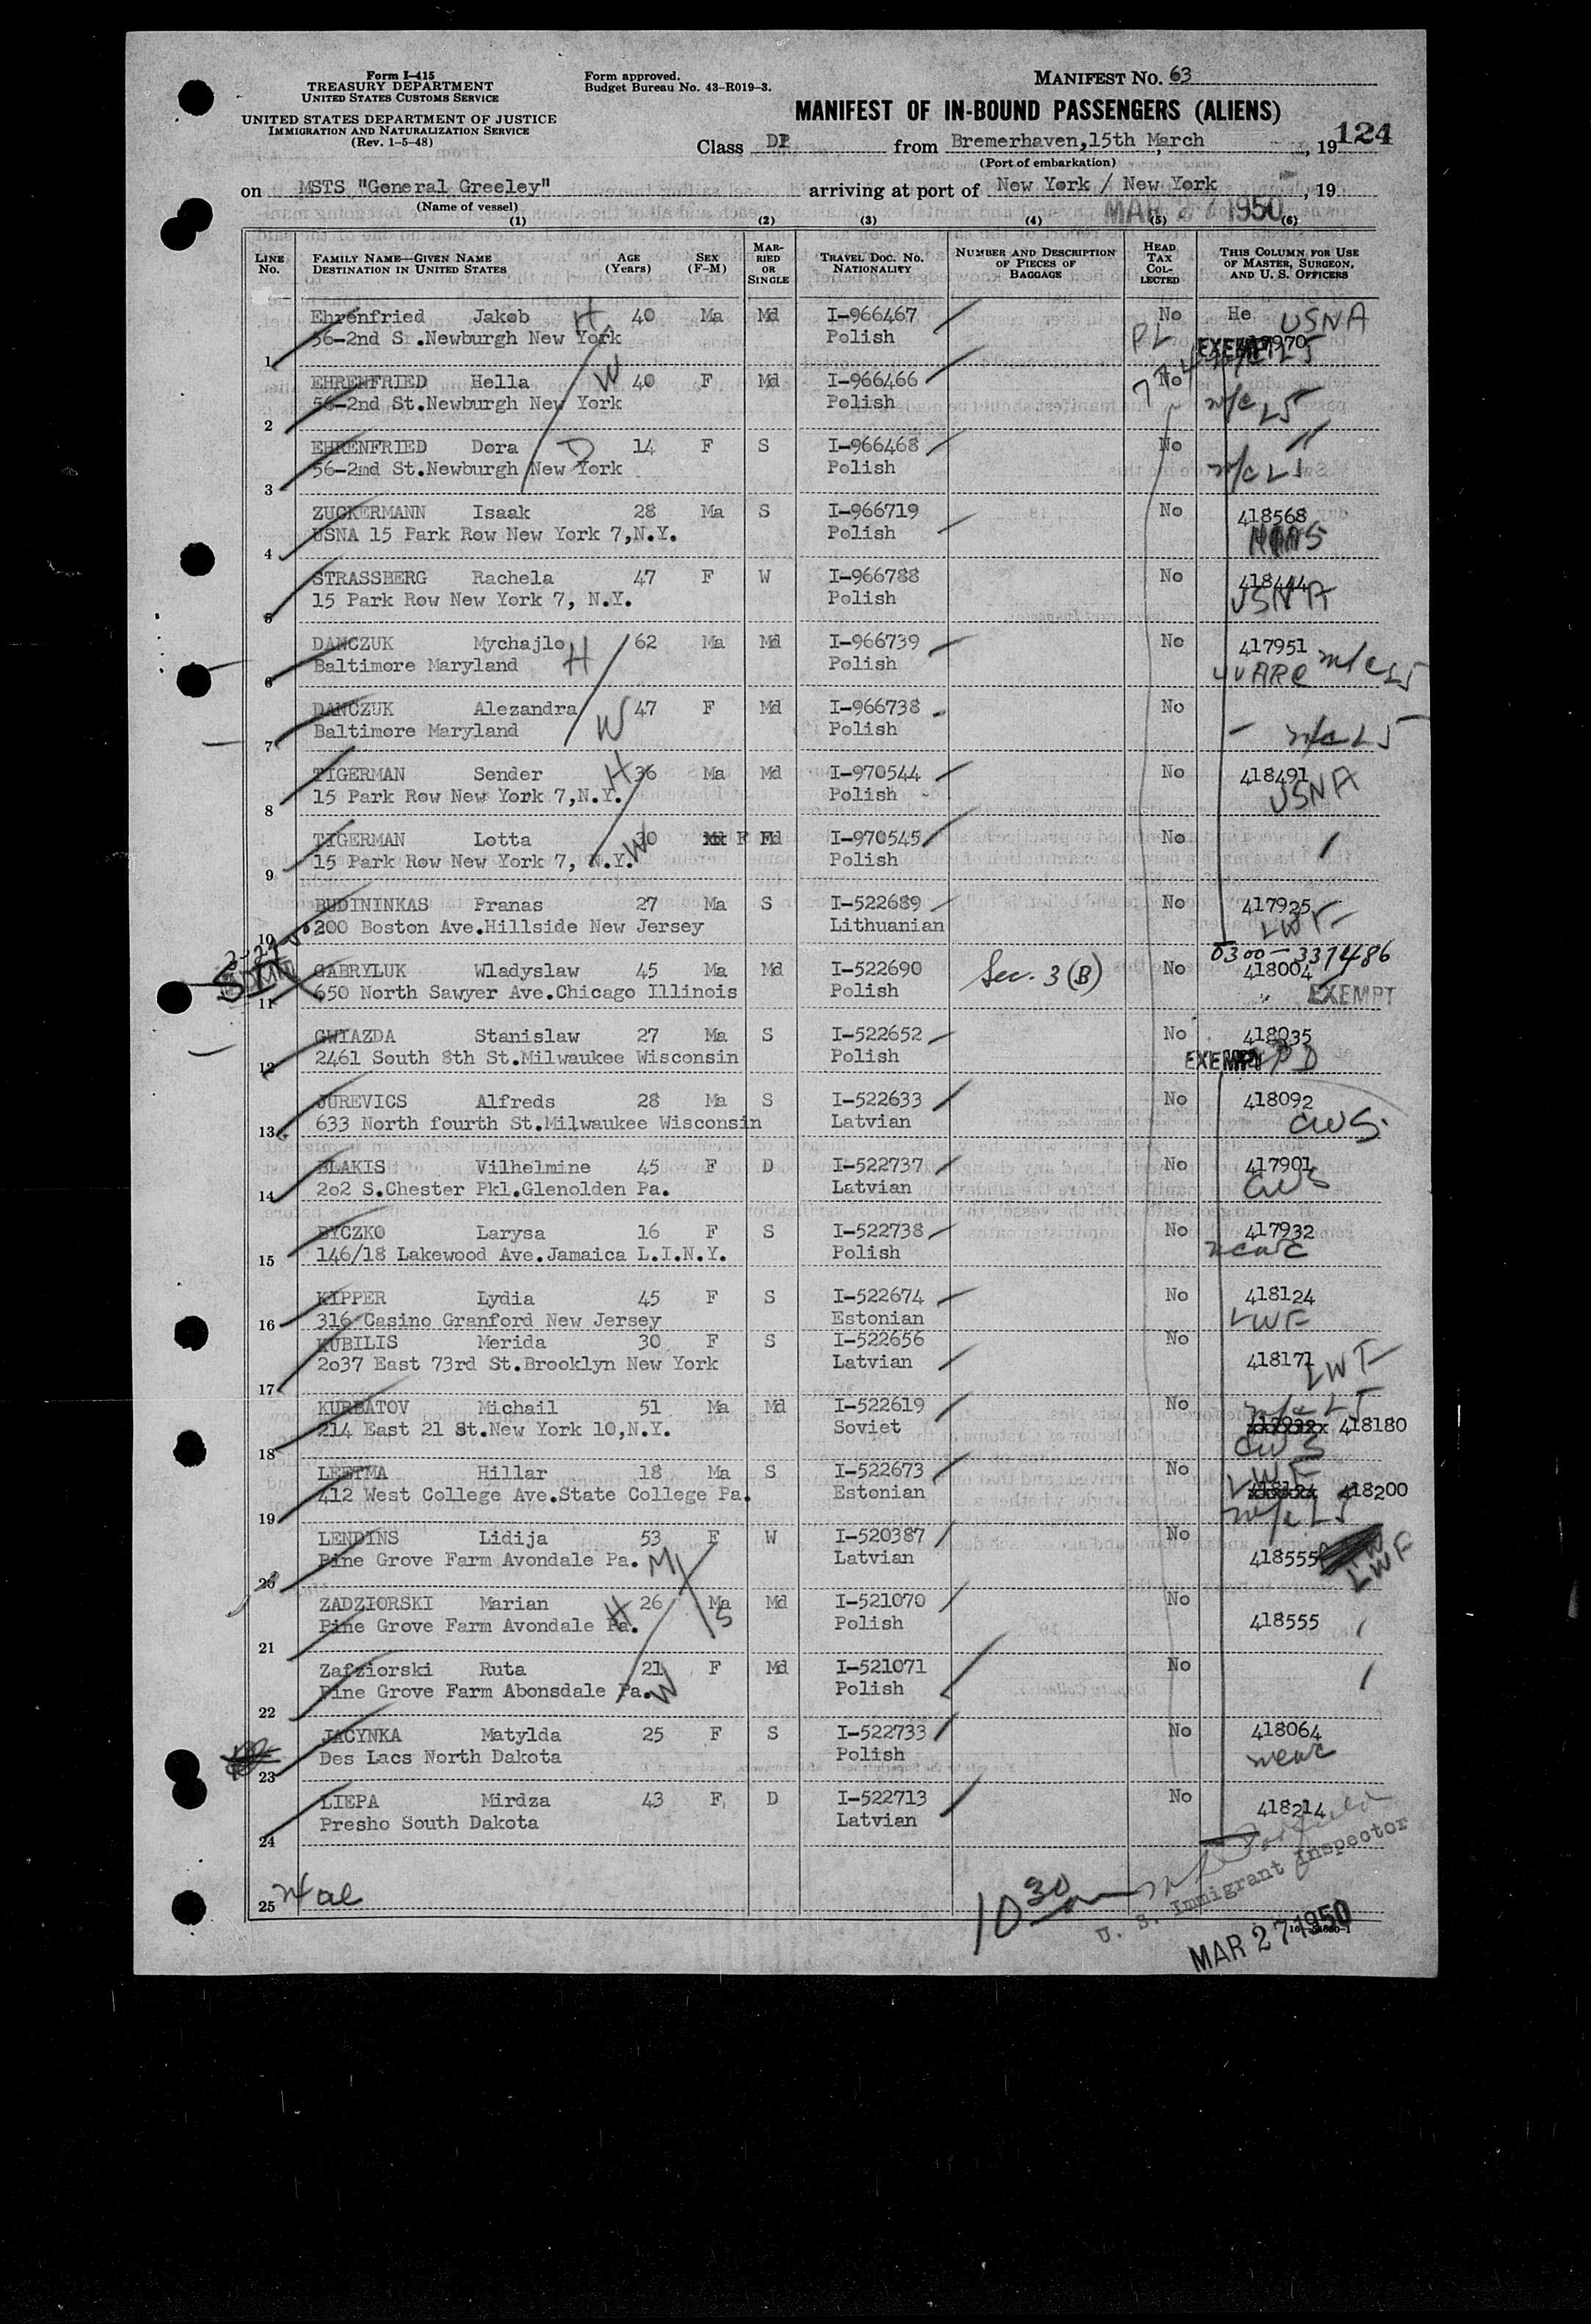 Form I-415
TREASURY DEPARTMENT
UNITED STATES CUSTOMS SERVICE
UNITED STATES DEPARTMENT OF JUSTICE
IMMIGRATION AND NATURALIZATION SERVICE
(Rev. 1-5-48)
Form approved.
Budget Bureau No. 43-R019-3.
MANIFEST NO. 63
MANIFEST OF IN-BOUND PASSENGERS (ALIENS)
124
Class DP from Bremerhaven,15th March, 19
(Port of embarkation)
on MSTS "General Greeley" arriving at port of New York / New York, 19
(Name of vessel)
MAR 27 1950
(1) (2) (3) (4) (5) (6)
LINE No. FAMILY NAME—GIVEN NAME DESTINATION IN UNITED STATES AGE (Years) SEX (F-M) MARRIED OR SINGLE TRAVEL DOC. NO. NATIONALITY NUMBER AND DESCRIPTION OF PIECES OF BAGGAGE HEAD TAX COLLECTED THIS COLUMN FOR USE OF MASTER, SURGEON, AND U. S. OFFICERS
Ehrenfried Jakob H 40 Ma Md I-966467 No He USNA
1 56-2nd S .Newburgh New York Polish PL EXEMPT 417970
EHRENFRIED Hella W 40 F Md I-966466 No
2 56-2nd St.Newburgh New York Polish n/c LS
EHRENFRIED Dora D 14 F S I-966468 No
3 56-2nd St.Newburgh New York Polish n/c LS
ZUCKERMANN Isaak 28 Ma S I-966719 No 418568
4 USNA 15 Park Row New York 7,N.Y. Polish
STRASSBERG Rachela 47 F W I-966788 No 418444
5 15 Park Row New York 7, N.Y. Polish USNA
DANCZUK Mychajlo H 62 Ma Md I-966739 No 417951 n/c LS
6 Baltimore Maryland Polish UUARC
DANCZUK Alezandra W 47 F Md I-966738 No
7 Baltimore Maryland Polish n/c LS
TIGERMAN Sender H 36 Ma Md I-970544 No 418491
8 15 Park Row New York 7,N.Y. Polish USNA
TIGERMAN Lotta W 30 F Md I-970545 No
9 15 Park Row New York 7, N.Y. Polish
BUDININKAS Pranas 27 Ma S I-522689 No 417925
10 200 Boston Ave.Hillside New Jersey Lithuanian LWF
0300-337486
GABRYLUK Wladyslaw 45 Ma Md I-522690 Sec. 3 (B) No 418004
11 650 North Sawyer Ave.Chicago Illinois Polish " EXEMPT
GWIAZDA Stanislaw 27 Ma S I-522652 No 418035
12 2461 South 8th St.Milwaukee Wisconsin Polish EXEMPT
JUREVICS Alfreds 28 Ma S I-522633 No 418092
13 633 North fourth St.Milwaukee Wisconsin Latvian CWS
BLAKIS Vilhelmine 45 F D I-522737 No 417901
14 2o2 S.Chester Pkl.Glenolden Pa. Latvian CWS
BYCZKO Larysa 16 F S I-522738 No 417932
15 146/18 Lakewood Ave.Jamaica L.I.N.Y. Polish ncwc
KIPPER Lydia 45 F S I-522674 No 418124
16 316 Casino Granford New Jersey Estonian LWF
KUBILIS Merida 30 F S I-522656 No
17 2o37 East 73rd St.Brooklyn New York Latvian 418171 LWF
KURBATOV Michail 51 Ma Md I-522619 No n/c LS
18 214 East 21 St.New York 10,N.Y. Soviet 418180
CWS
LEETMA Hillar 18 Ma S I-522673 No LWF
19 412 West College Ave.State College Pa. Estonian 418200
n/c LS
LENDINS Lidija 53 F W I-520387 No
20 Pine Grove Farm Avondale Pa. M Latvian 418555 LWF
ZADZIORSKI Marian H 26 Ma Md I-521070 No
21 Pine Grove Farm Avondale Pa. S Polish 418555
Zafziorski Ruta 21 F Md I-521071 No
22 Pine Grove Farm Abonsdale Pa. W Polish
JACYNKA Matylda 25 F S I-522733 No 418064
23 Des Lacs North Dakota Polish ncwc
LIEPA Mirdza 43 F D I-522713 No
24 Presho South Dakota Latvian 418214
25
10 30 am
U. S. Immigrant Inspector
MAR 27 1950